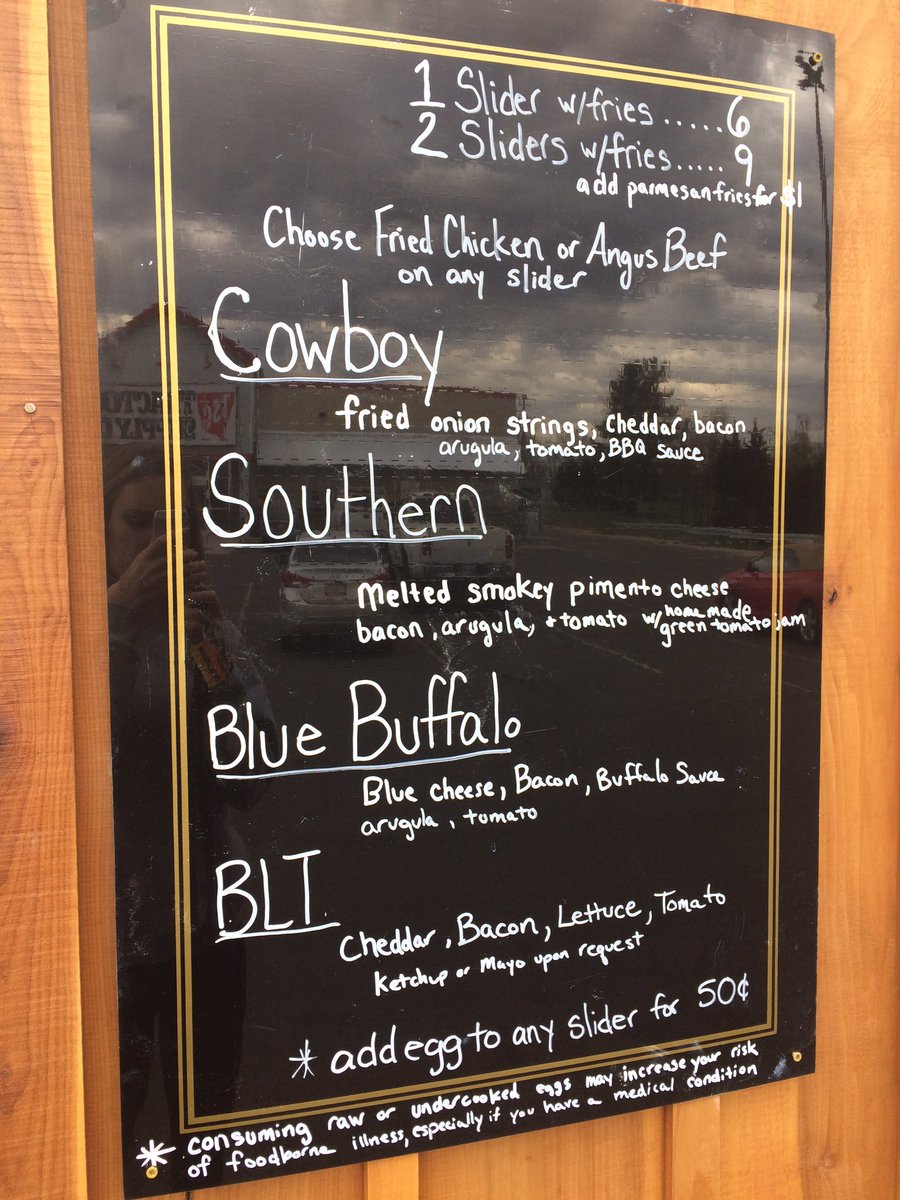 1 Slider w/fries.....6
2 Sliders w/fries.....9
add parmesan fries for $1
Choose Fried Chicken or Angus Beef
on any slider
Cowboy
fried onion strings, cheddar, bacon
arugula, tomato, BBQ sauce
Southern
melted smokey pimento cheese
bacon, arugula, + tomato w/ home made
green tomato jam
Blue Buffalo
Blue cheese, Bacon, Buffalo Sauce
arugula, tomato
BLT
Cheddar, Bacon, Lettuce, Tomato
Ketchup or Mayo upon request
* add egg to any slider for 50¢
* consuming raw or undercooked eggs may increase your risk
of foodborne illness, especially if you have a medical condition
TRACTOR
SUPPLY CO